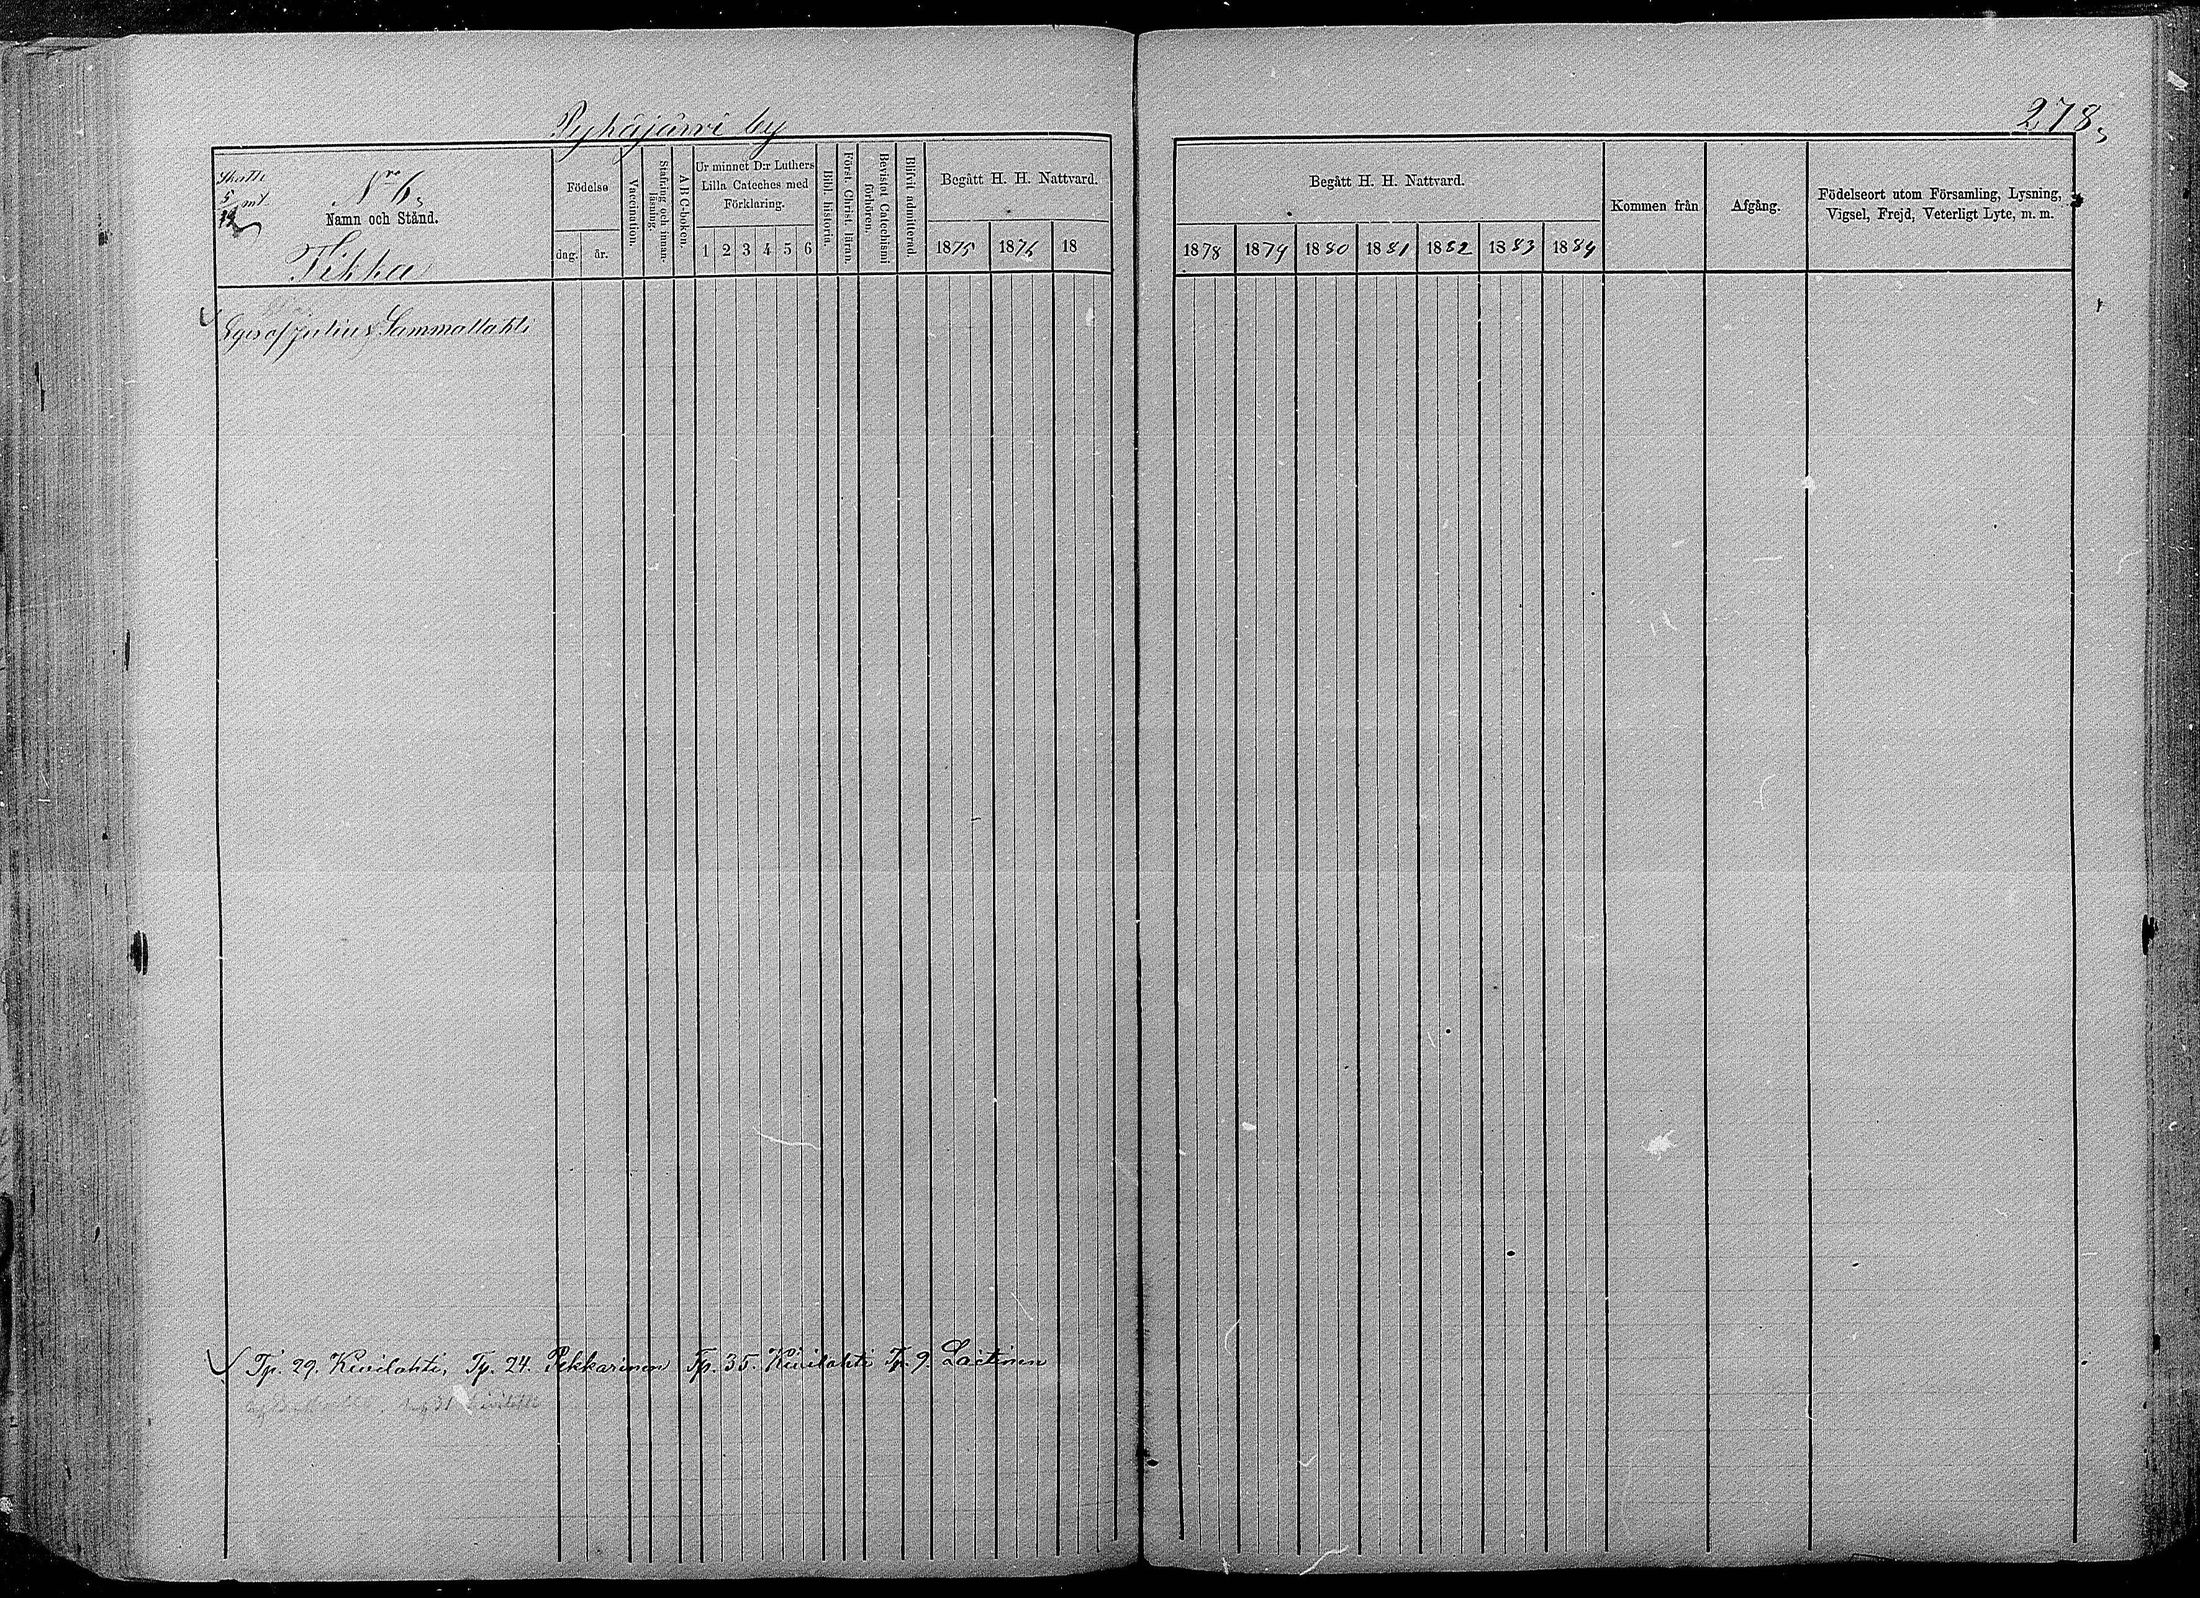 Pyhäjärvi by
278
Skatt
5/12 mt
Nro 6
Namn och Stånd.
Tikka
Födelse
dag. år.
Vaccination.
Stafning och innanläsning.
A B C-boken.
Ur minnet D:r Luthers
Lilla Cateches med
Förklaring.
1 2 3 4 5 6
Bibl. historia.
Först. Christ. läran.
Bevistat Catechismi förhören.
Blifvit admitterad.
Begått H. H. Nattvard.
1875 1876 18
Begått H. H. Nattvard.
1878 1879 1880 1881 1882 1883 1884
Kommen från
Afgång.
Födelseort utom Församling, Lysning,
Vigsel, Frejd, Veterligt Lyte, m. m.
Eges af Julius Sammallahti
Tp. 29. Kivilahti, Tp. 24. Pekkarinen Tp. 35. Kivilahti Tp. 9. Laitinen
31 Kivilahti